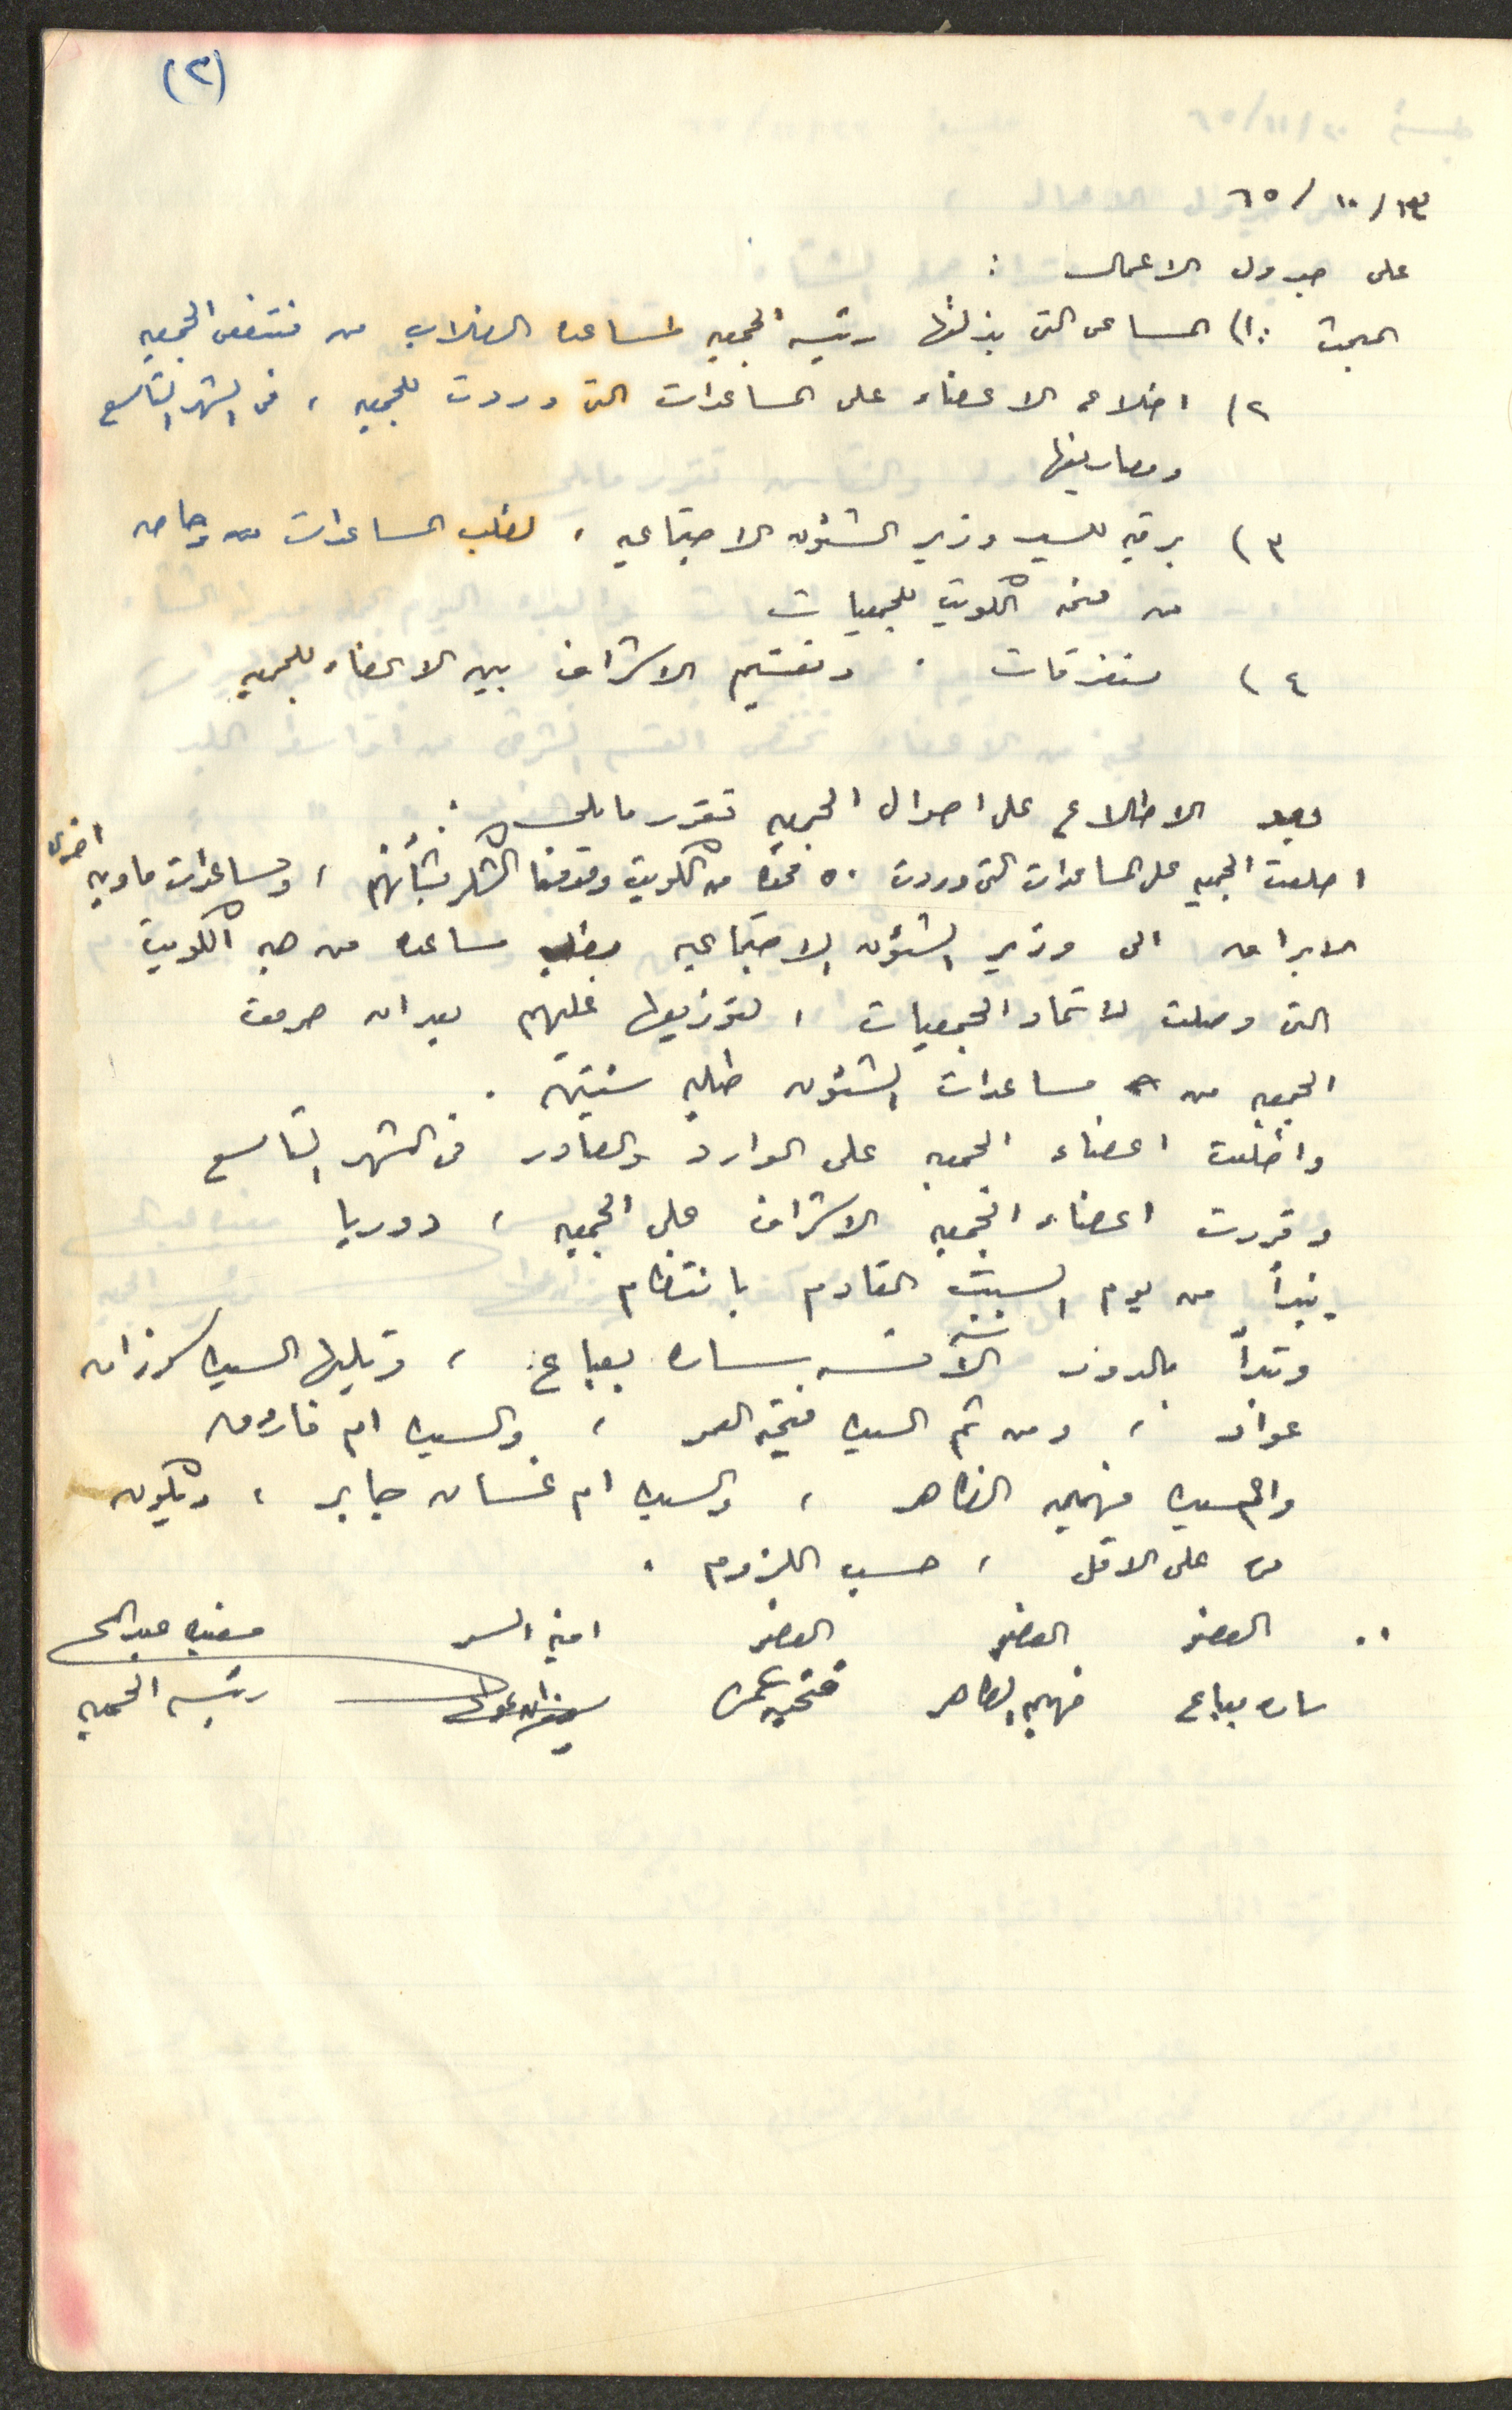 (٢)
١٣/ ١٠/ ٦٥
على جدول الاعمال :
البحث :١) المساعي التي بذلتها رئيسه الجمعيه لمساعده الطلاب من منتفعي الجمعيه
٢) اطلاع الاعضاء على المساعدات التي وردت للجمعيه ، في الشهر التاسع
ومصاريفها
٣) برقيه للسيد وزير الشئون الاجتماعيه ، لطلب المساعدات وخاصه
من منحه الكويت للجمعيات
٤) متفرقات . وتقسيم الاشراف بين الاعضاء للجمعيه
بعد الاطلاع على احوال الجمعيه تقرر مايلي :
اطلعت الجمعيه على المساعدات التي وردت ٥٠ من الكويت الشكر بشأنهم ، ومساعدات ماديه اخرى
الابراق الى وزير الشئون الاجتماعيه بطلب مساعده من هبه الكويت
التي وصلت لاتحاد الجمعيات ، لتوزيعها عليهم بعد ان حرمت
الجمعيه من مساعدات الشئون طيلة سنتين .
واطلعت اعضاء الجمعيه على الوارد والصادر في الشهر التاسع
وقررت اعضاء الجمعيه الاشراف على الجمعيه ، دوريا
يبدأ من يوم السبت القادم بانتظام
وتبدأ بالدور الآنسه ساره بعباع ، وتليها السيده سوزان
عواد ، ومن ثم السيده فتحيه العمر ، والسيده ام فاروق
والسيده فهميه الظاهر ، والسيده ام غسان جابر ، ويكون
مره على الاقل ، حسب اللزوم .
العضو العضو العضو امينه السر مفيده عبد
ساره بعباع فهميه الظاهر فتحيه عمر سوزان عواد رئيسه الجمعيه